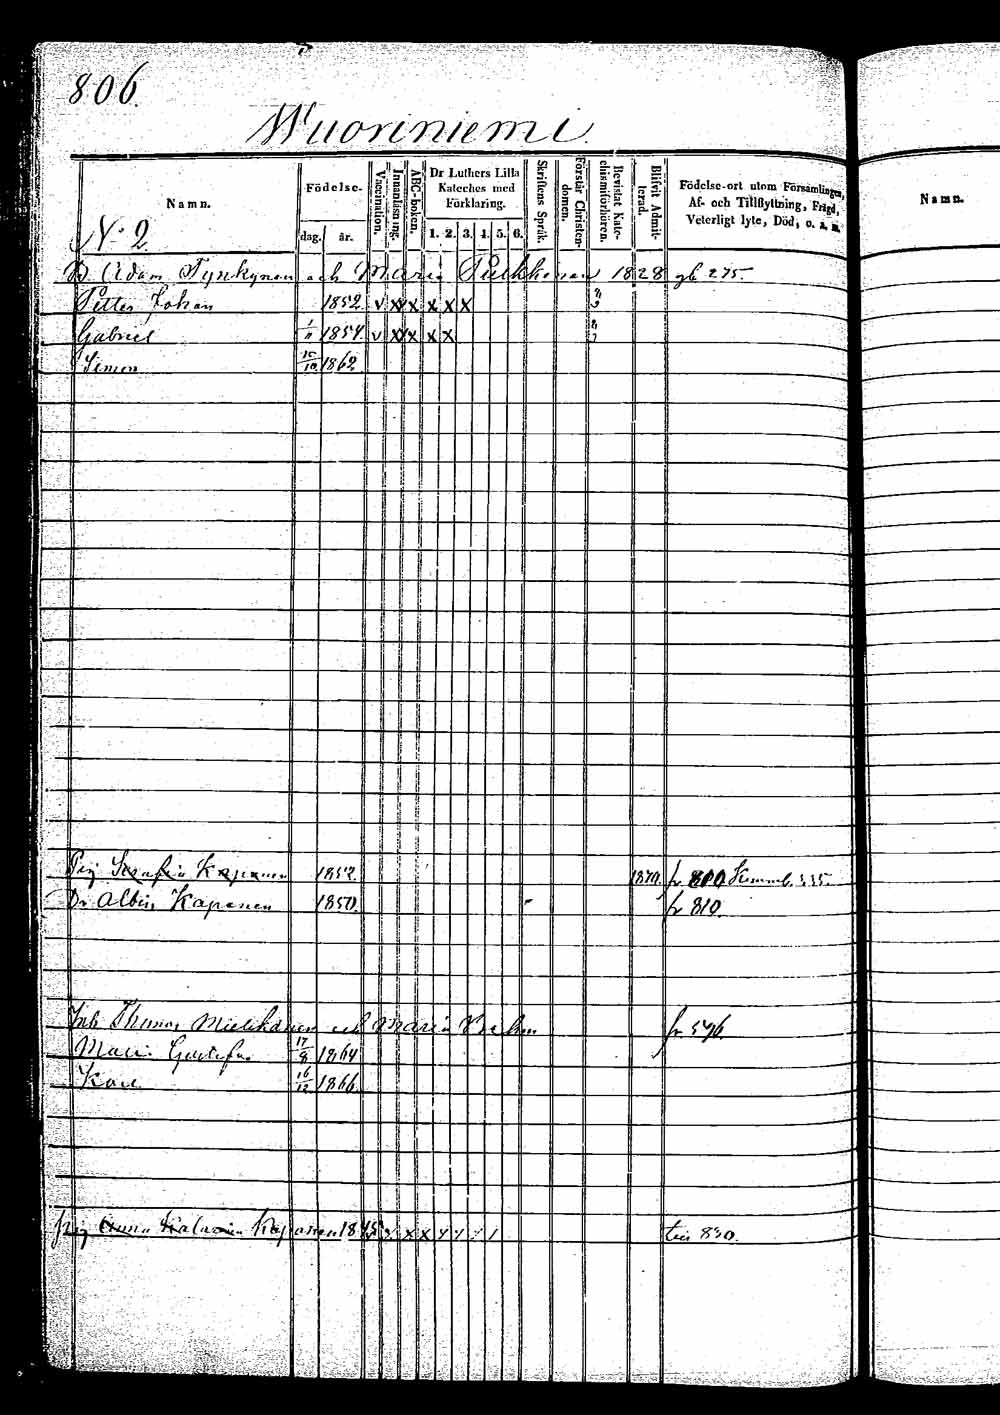 806.
Wuoriniemi.
Namn.
Födelse-
dag. år.
Vaccination.
Innanläsning.
ABC-boken.
Dr Luthers Lilla Kateches med Förklaring.
1. 2. 3. 4. 5. 6.
Skriftens Språk.
Förstår Christendomen.
Bevistat Katechismiförhören.
Blifvit Admitterad.
Födelse-ort utom Församlingen, Af- och Tillflyttning, Frigd, Veterligt lyte, Död, o. s. m.
Namn.
N: 2
B. Adam Tynkynen och Maria Pulkkonen 1828 gb 275
Petter Johan 1852 v x x x x x
Gabriel 1/11 1854. v x x x x
Simon 15/10 1862
Pig Serafia Kaponen 1852. 1870. fr 810
Dr Albin Kaponen 1850. fr 810.
Inh Thomas Mielikäinen och Maria fr 546.
Maria Gustafva 17/8 1864
Karl 16/12 1866.
pig Anna Katarin Kaponen 1845 x x x till 830.